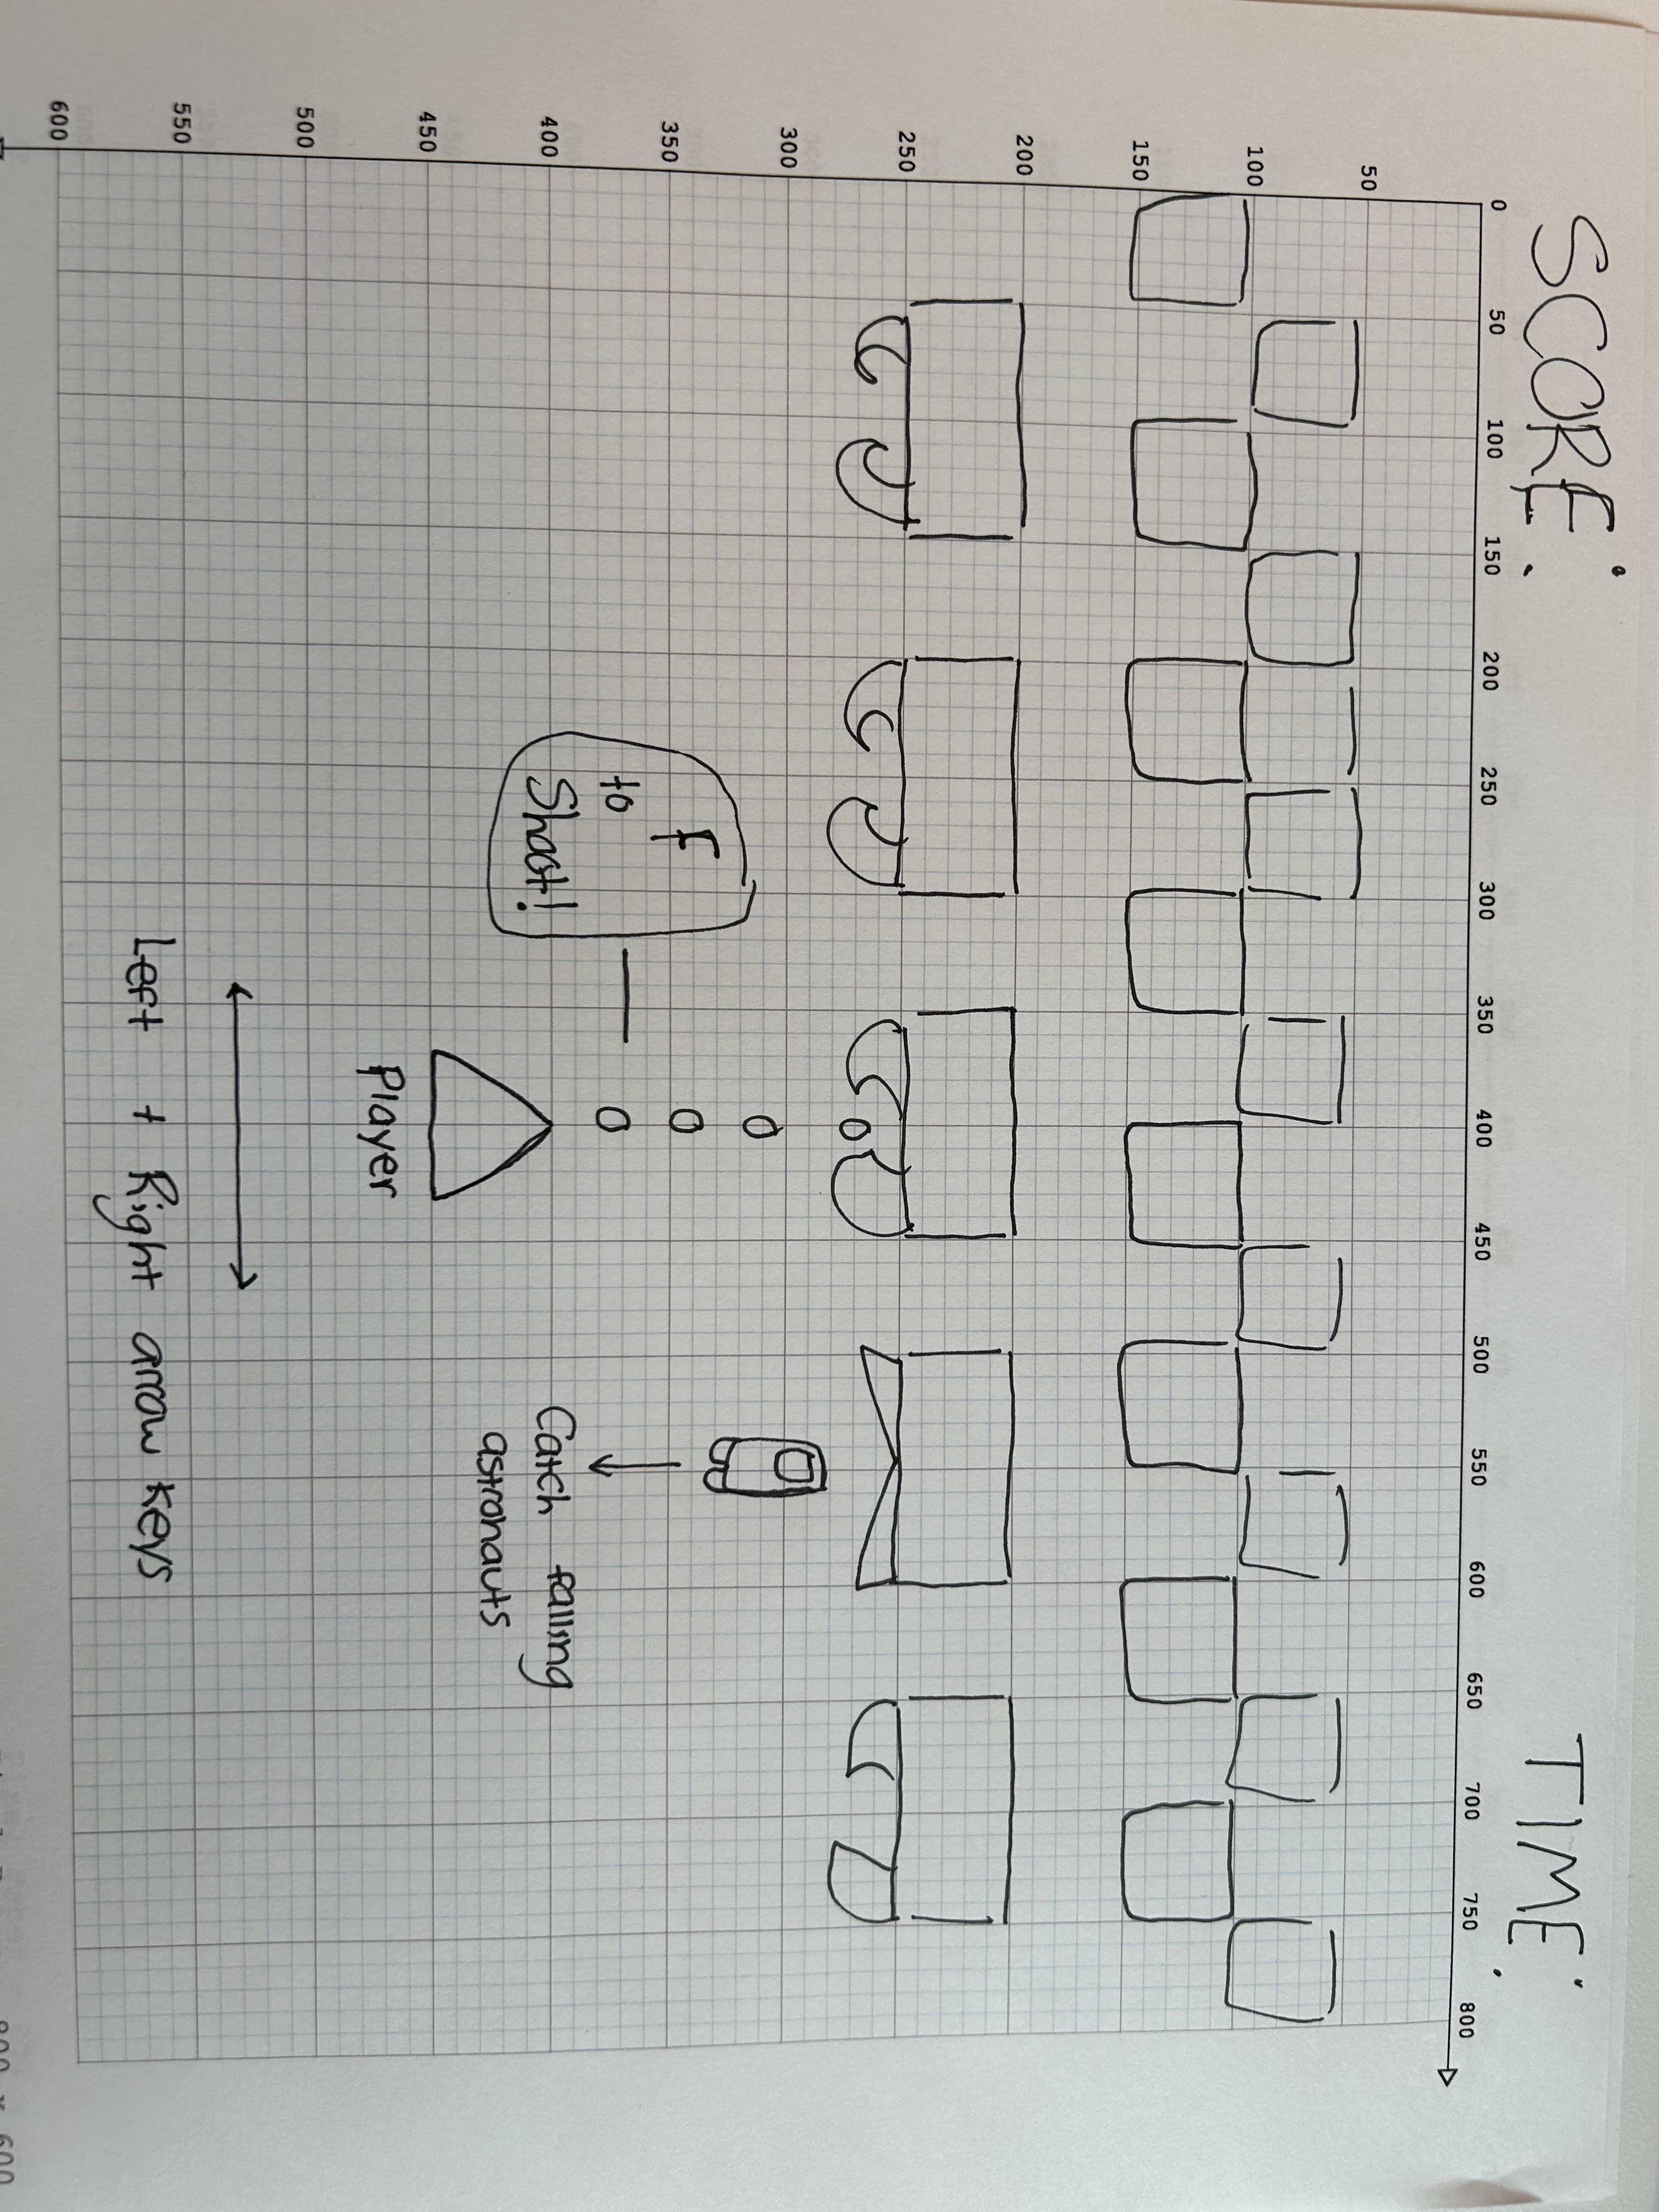 SCORE:
TIME:
0 50 100 150 200 250 300 350 400 450 500 550 600 650 700 750 800
50
100
150
200
250
300
350
400
450
500
550
600
F
to
Shoot!
Player
Catch falling
astronauts
Left + Right arrow keys